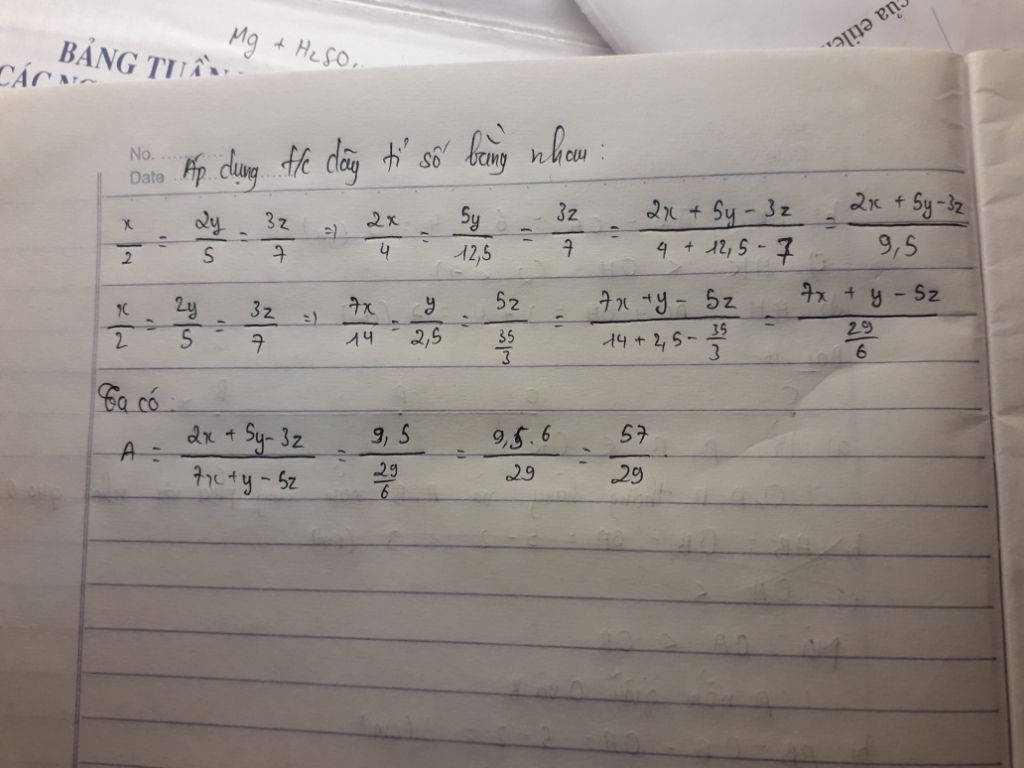 của etilen
Mg + H₂SO
BẢNG TUẦN
CÁC
No.
Date
Áp dụng t/c dãy tỉ số bằng nhau:
x/2 = 2y/5 = 3z/7 => 2x/4 = 5y/12,5 = 3z/7 = (2x + 5y - 3z)/(4 + 12,5 - 7) = (2x + 5y - 3z)/9,5
x/2 = 2y/5 = 3z/7 => 7x/14 = y/2,5 = 5z/(35/3) = (7x + y - 5z)/(14 + 2,5 - 35/3) = (7x + y - 5z)/(29/6)
Ta có:
A = (2x + 5y - 3z)/(7x + y - 5z) = 9,5/(29/6) = (9,5 . 6)/29 = 57/29